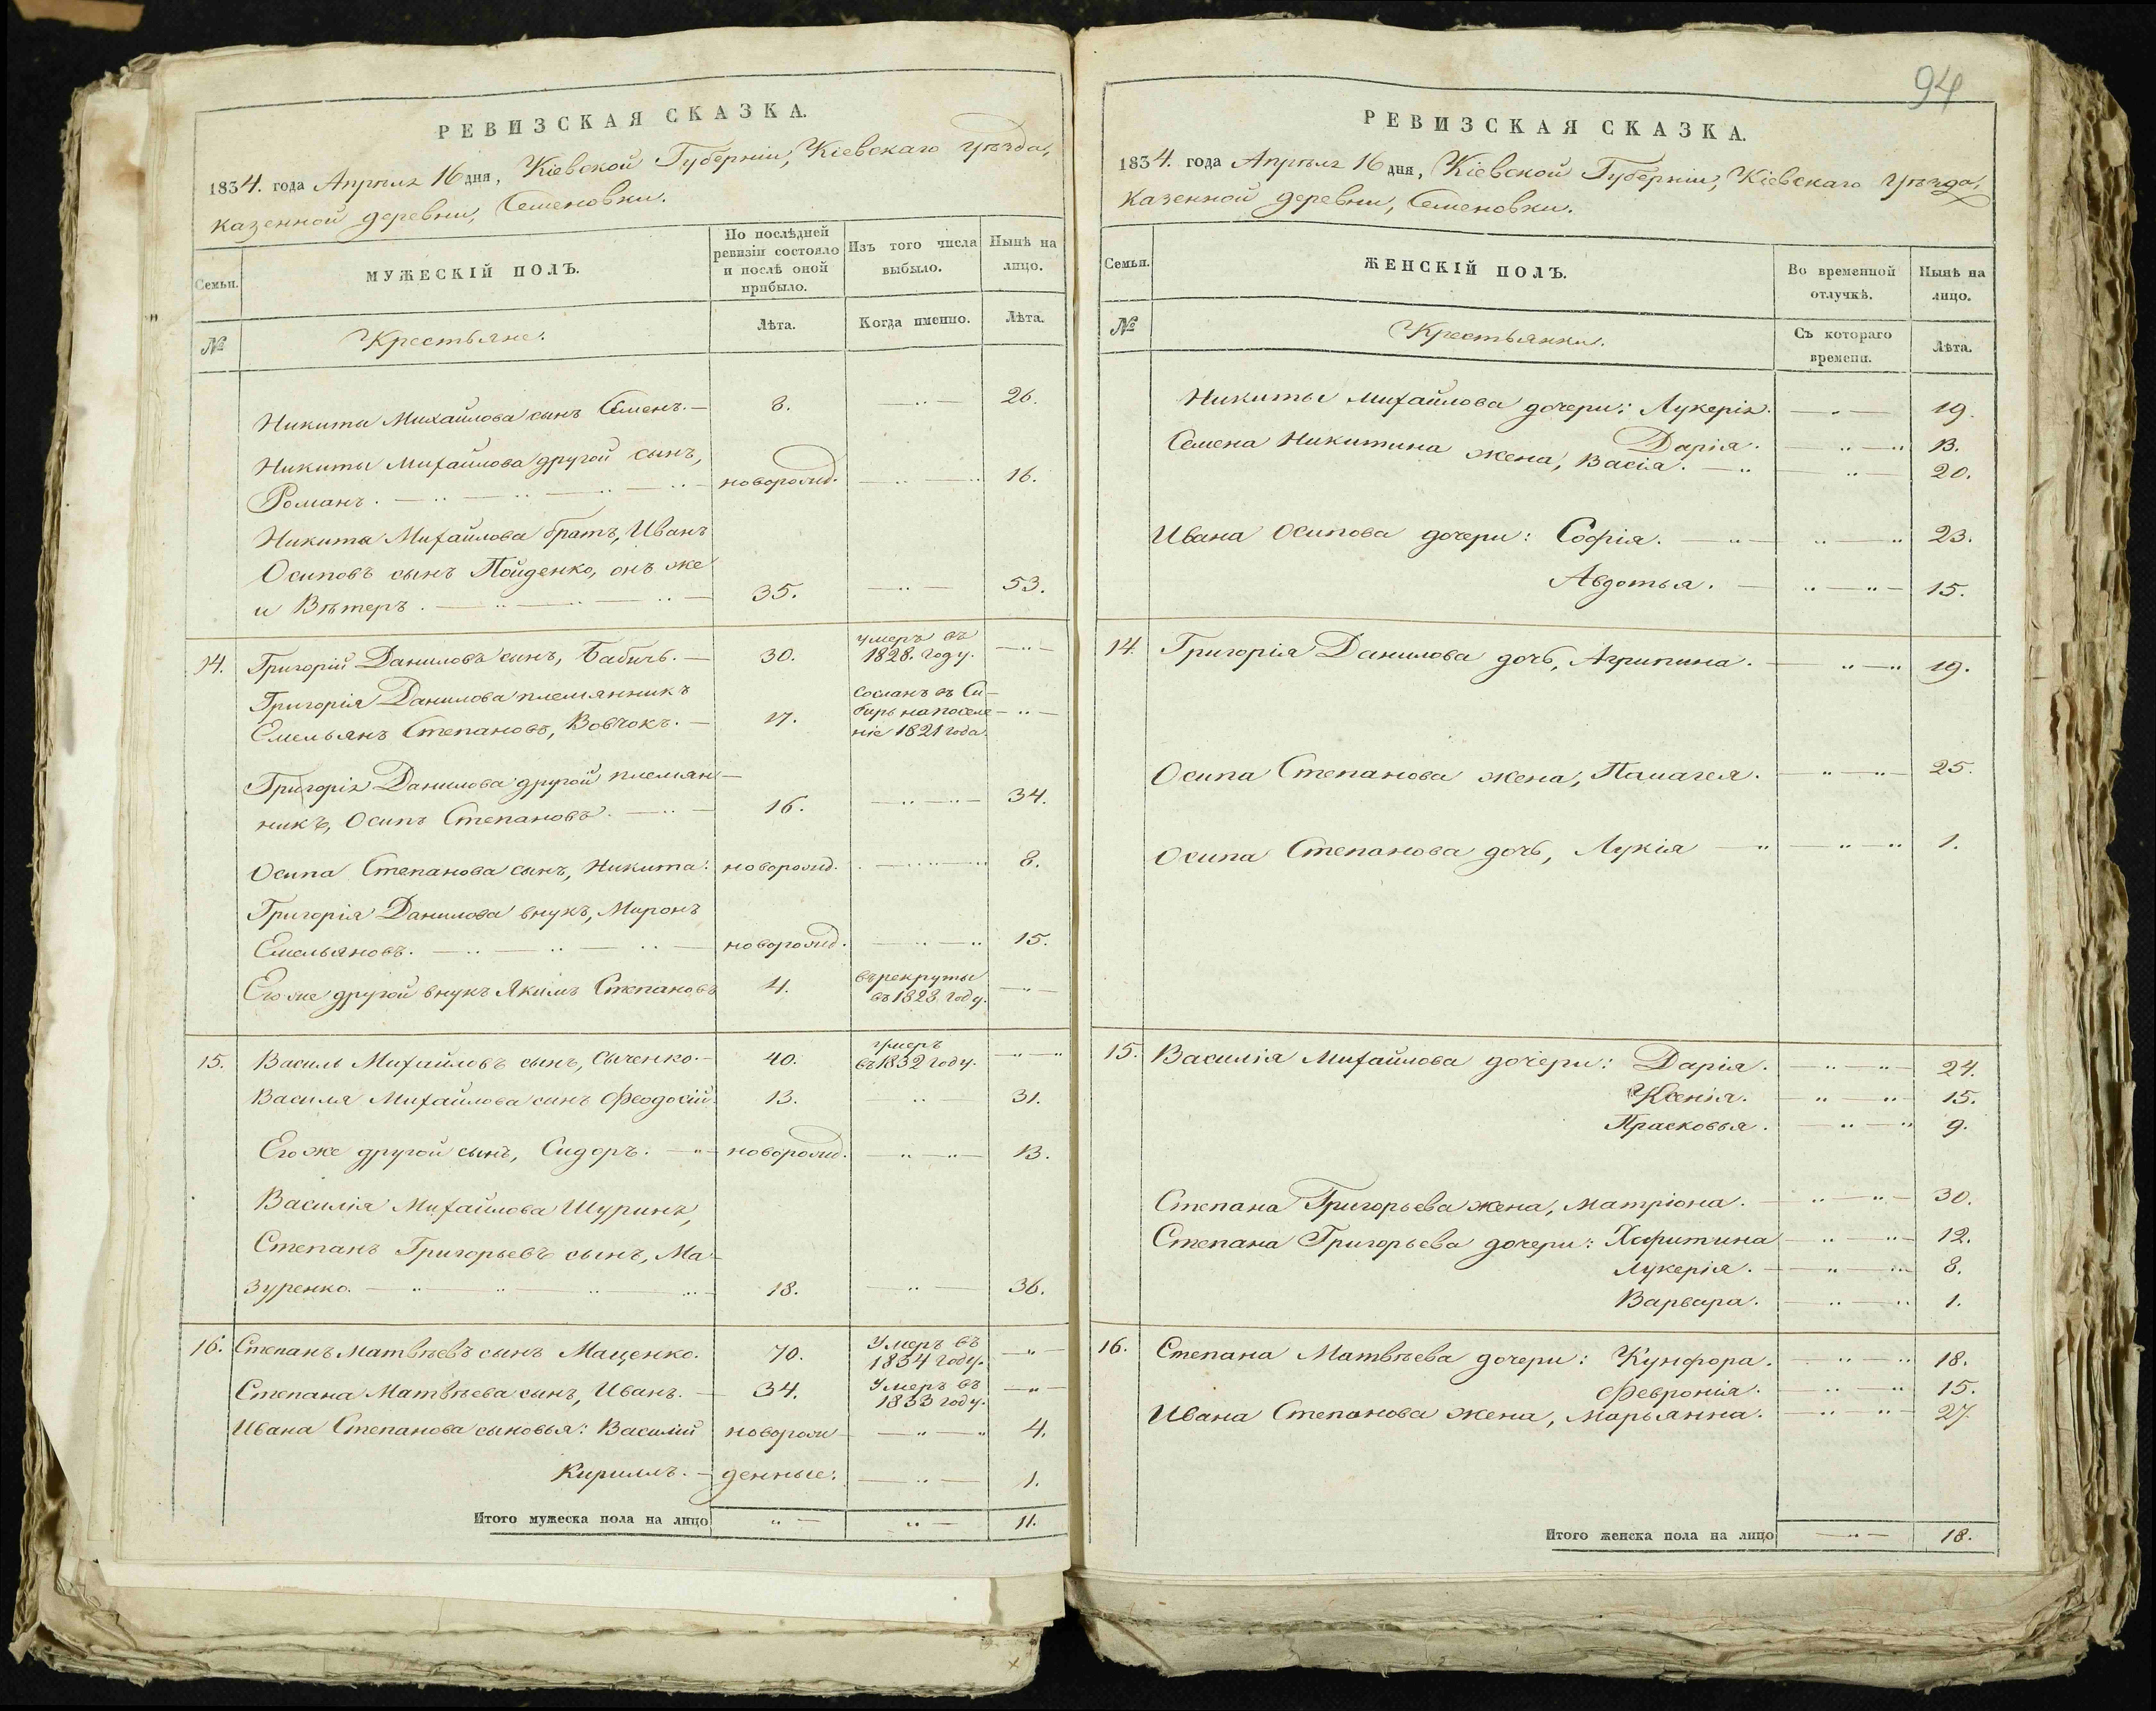 РЕВИЗСКАЯ СКАЗКА.
1834. года Апрѣля 16 дня, Кіевской Губерніи, Кіевскаго уѣзда,
казенной деревни, Семеновки.
Семьи.
МУЖЕСКІЙ ПОЛЪ.
По послѣдней
ревизіи состояло
и послѣ оной
прибыло.
Изъ того числа
выбыло.
Нынѣ на
лицо.
№
Крестьяне:
Лѣта.
Когда именно.
Лѣта.
Никиты Михайлова сынъ Семенъ. 8. 26.
Никиты Михайлова другой сынъ,
Романъ. новорожд. 16.
Никиты Михайлова братъ, Иванъ
Осиповъ сынъ Пойденко, онъ же
и Вѣтеръ. 35. 53.
14. Григорій Даниловъ сынъ, Бабичь. 30. умеръ въ
1828. году.
Григорія Данилова племянникъ
Емельянъ Степановъ, Вовчокъ. 17. Сосланъ въ Си-
бирь на поселе-
ніе 1821 года.
Григорія Данилова другой племян-
никъ, Осипъ Степановъ. 16. 34.
Осипа Степанова сынъ, Никита: новорожд. 8.
Григорія Данилова внукъ, Миронъ
Емельяновъ. новорожд. 15.
Его же другой внукъ Якимъ Степановъ 4. въ рекруты
въ 1828 году.
15. Василь Михайловъ сынъ, Сыченко. 40. умеръ
въ 1832 году.
Василя Михайлова сынъ Феодосій. 13. 31.
Его же другой сынъ, Сидоръ. новорожд. 13.
Василія Михайлова Шуринъ,
Степанъ Григорьевъ сынъ, Ма-
зуренко. 18. 36.
16. Степанъ Матвѣевъ сынъ Мащенко. 70. Умеръ въ
1834 году.
Степана Матвѣева сынъ, Иванъ. 34. Умеръ въ
1833 году.
Ивана Степанова сыновья: Василий новорож- 4.
Кириллъ. денные. 1.
Итого мужеска пола на лицо 11.
94
РЕВИЗСКАЯ СКАЗКА.
1834. года Апрѣля 16 дня, Кіевской Губерніи, Кіевскаго уѣзда,
казенной деревни, Семеновки.
Семьи.
ЖЕНСКІЙ ПОЛЪ.
Во временной
отлучкѣ.
Нынѣ на
лицо.
№
Крестьянки.
Съ котораго
времени.
Лѣта.
Никиты Михайлова дочери: Лукерія. 19.
Дарія. 13.
Семена Никитина жена, Васіа. 20.
Ивана Осипова дочери: Софія. 23.
Авдотья. 15.
14. Григорія Данилова дочь, Агрипина. 19.
Осипа Степанова жена, Палагея. 25.
Осипа Степанова дочь, Лукія 1.
15. Василія Михайлова дочери: Дарія. 24.
Ксенія. 15.
Прасковья. 9.
Степана Григорьева жена, Матріона. 30.
Степана Григорьева дочери: Харитина 12.
Лукерія. 8.
Варвара. 1.
16. Степана Матвѣева дочери: Кунфора. 18.
Февронія. 15.
Ивана Степанова жена, Марьянна. 27.
Итого женска пола на лицо 18.